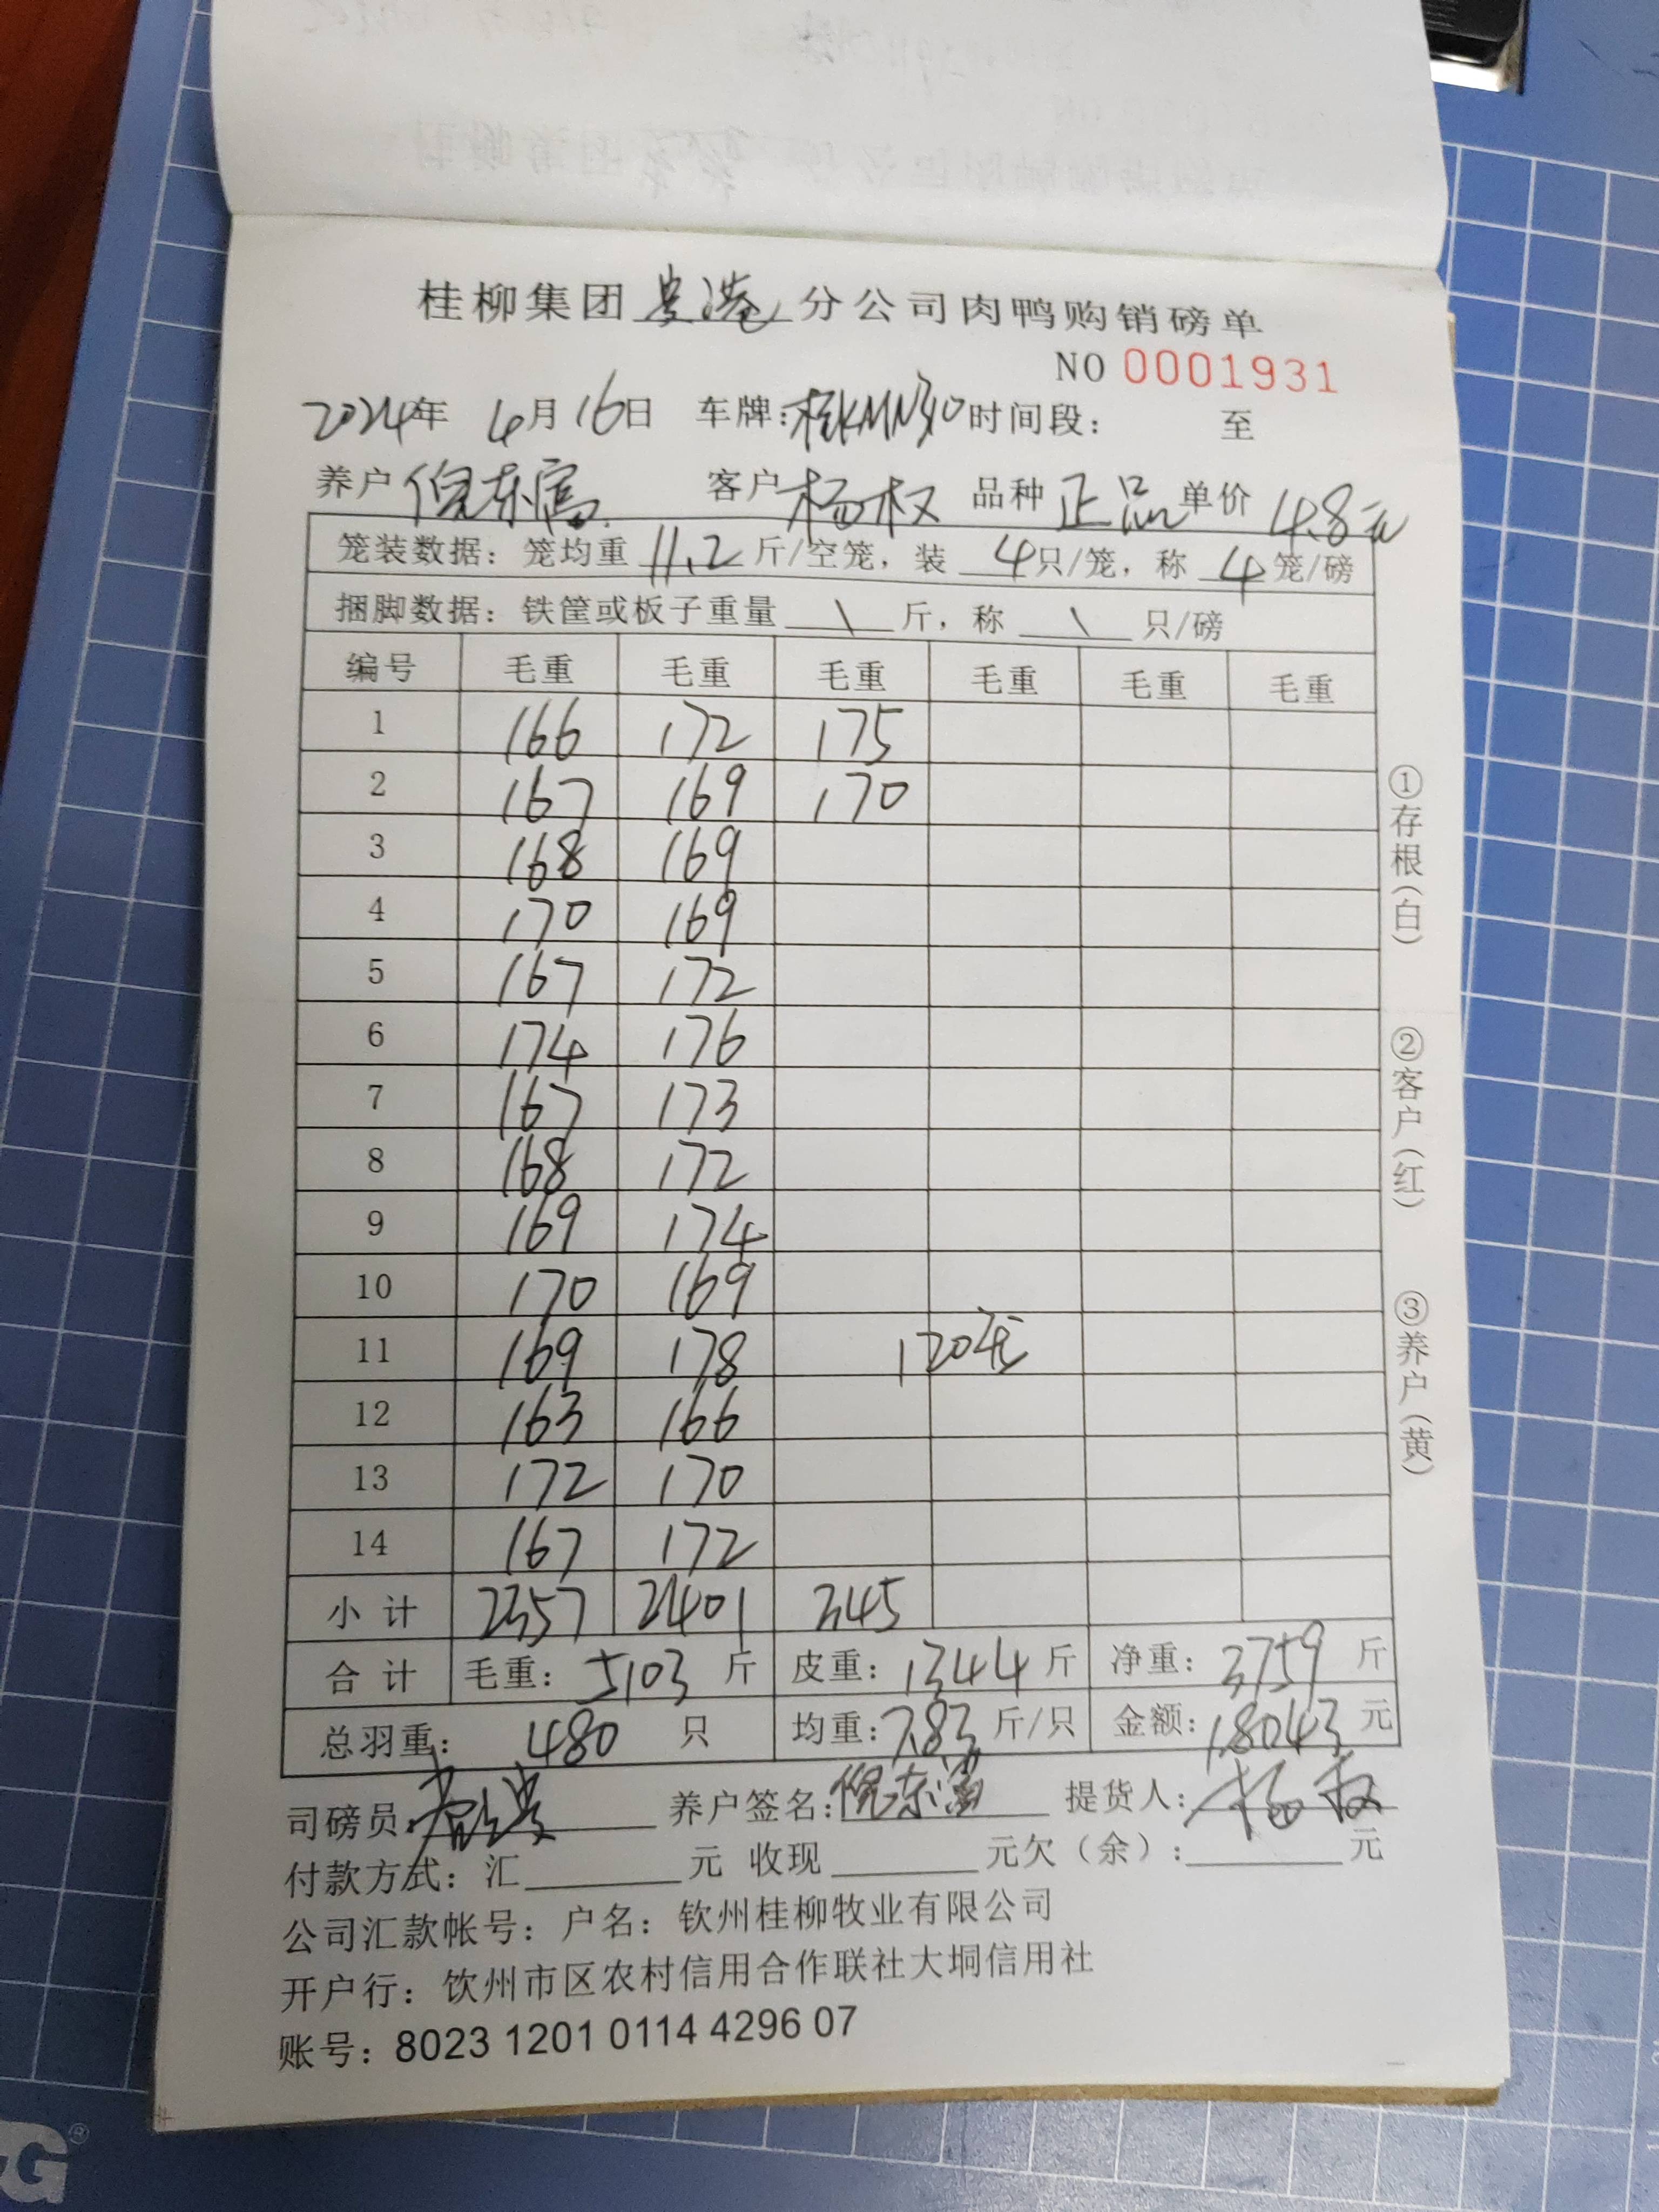 桂柳集团贵港分公司肉鸭购销磅单
NO 0001931
2024年 4月16日 车牌:桂KMN310 时间段: 至
养户 倪东富 客户 杨权 品种 正品 单价 4.8元
笼装数据: 笼均重 11.2 斤/空笼, 装 4只/笼, 称 4笼/磅
捆脚数据: 铁筐或板子重量 \ 斤, 称 \ 只/磅
编号 毛重 毛重 毛重 毛重 毛重 毛重
1 166 172 175
2 167 169 170
3 168 169
4 170 169
5 167 172
6 174 176
7 167 173
8 168 172
9 169 174
10 170 169
11 169 178 120笼
12 163 166
13 172 170
14 167 172
小计 2357 2401 345
合计 毛重: 5103 斤 皮重: 1344 斤 净重: 3759 斤
总羽重: 480 只 均重: 7.83 斤/只 金额: 18043 元
司磅员: 养户签名: 倪东富 提货人: 杨权
付款方式: 汇 元 收现 元欠(余): 元
公司汇款帐号: 户名: 钦州桂柳牧业有限公司
开户行: 饮州市区农村信用合作联社大垌信用社
账号: 8023 1201 0114 4296 07
①存根(白)
②客户(红)
③养户(黄)